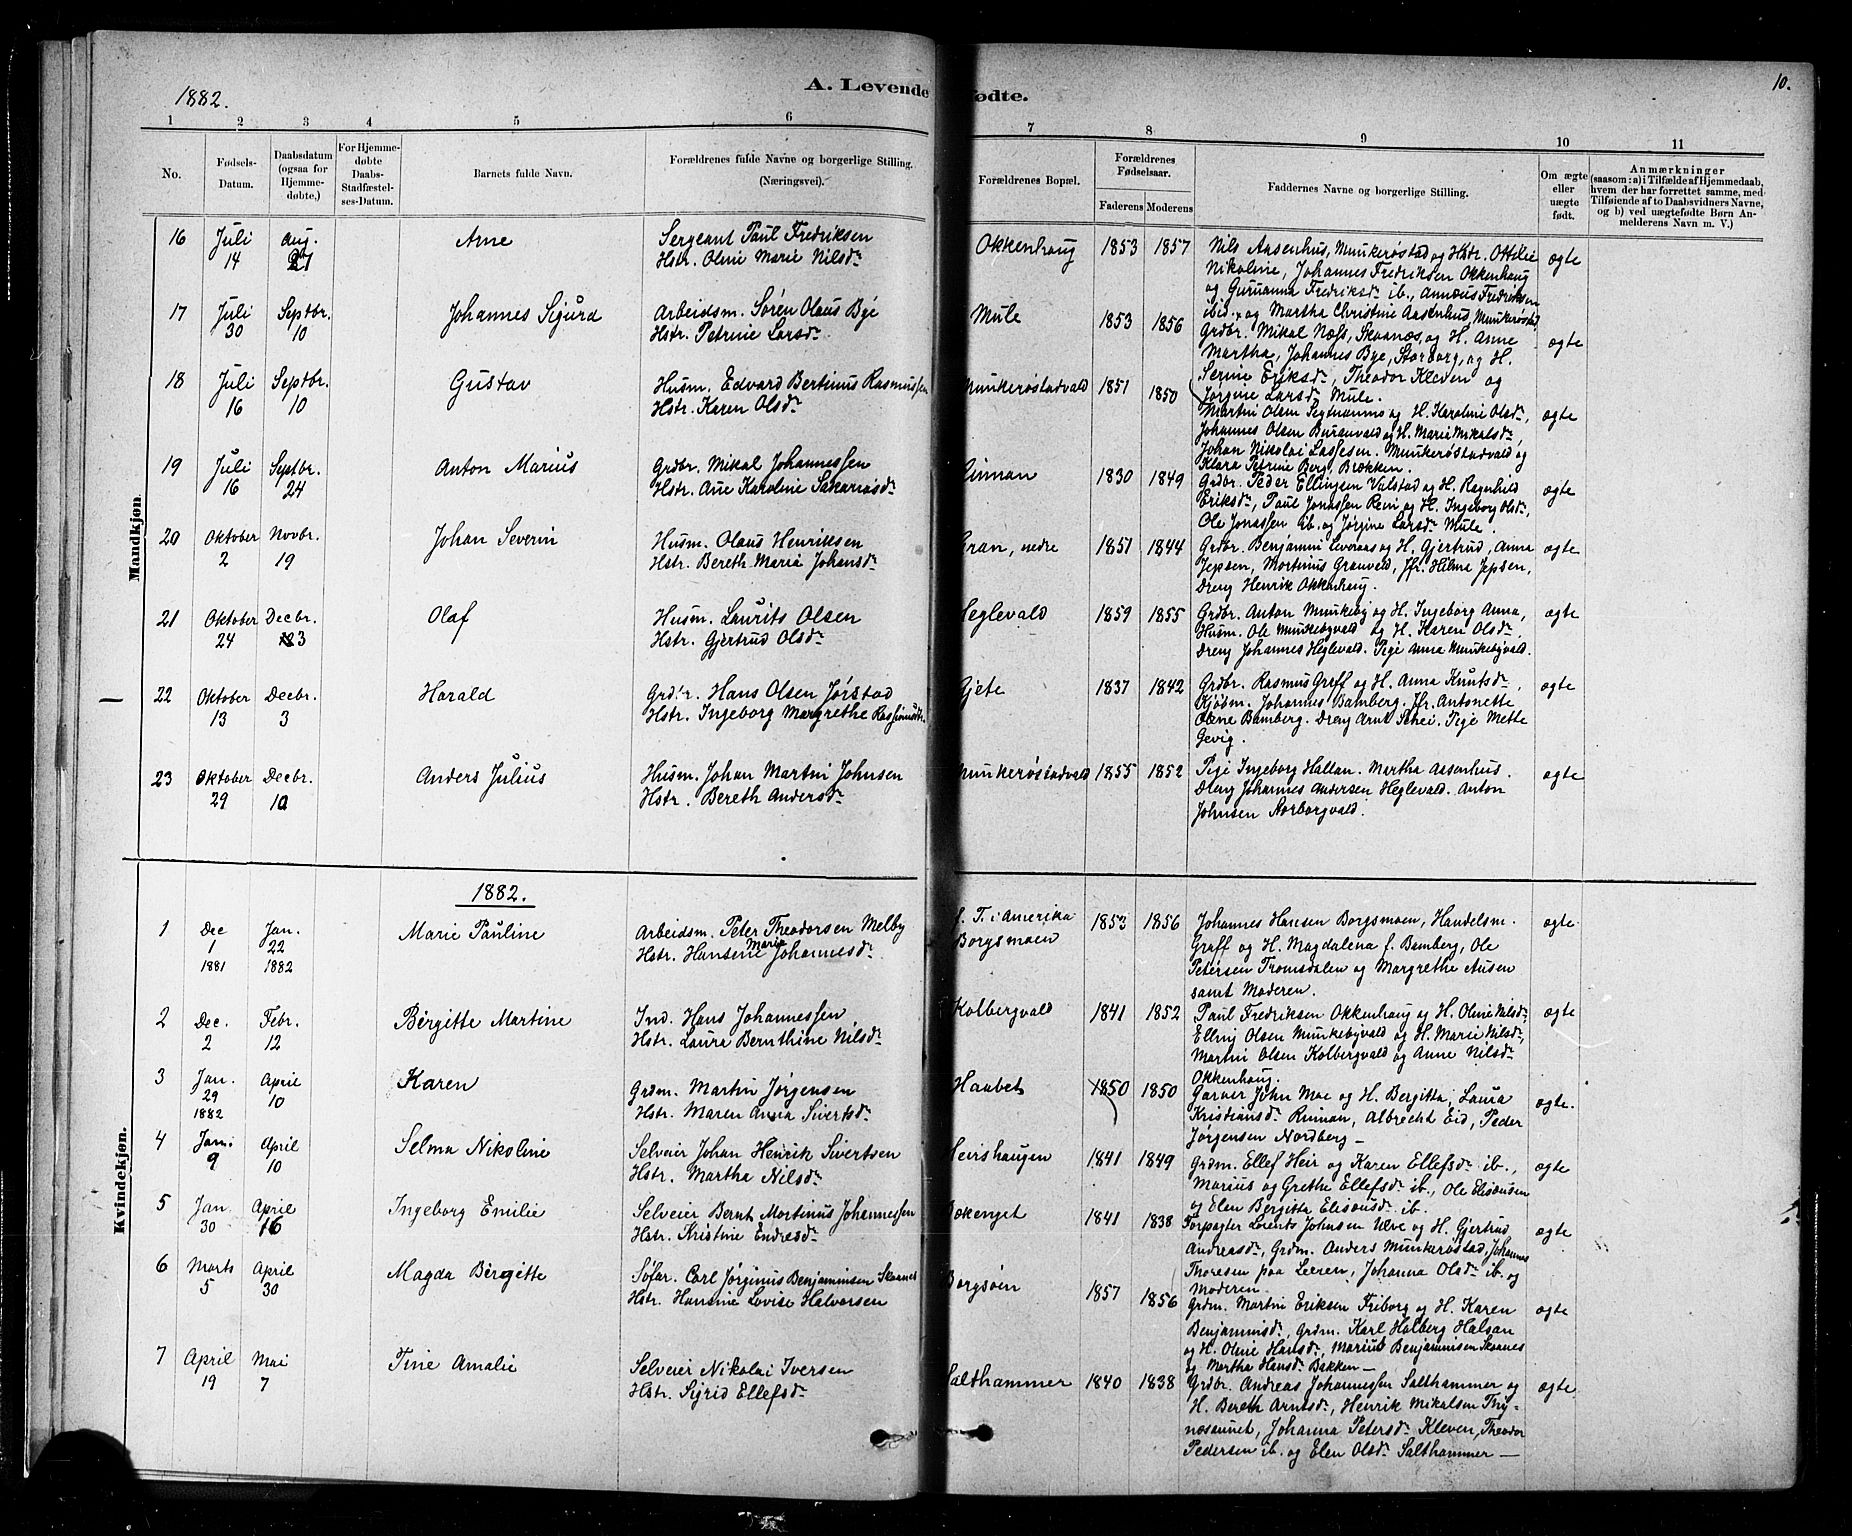 1882.
A. Levende Fødte.
10.
1 2 3 4 5 6 7 8 9 10 11
No.
Fødsels-Datum.
Daabsdatum (ogsaa for Hjemme-døbte,)
For Hjemme-døbte Daabs-Stadfæstel-ses-Datum.
Barnets fulde Navn.
Forældrenes fulde Navne og borgerlige Stilling. (Næringsvei).
Forældrenes Bopæl.
Forældrenes Fødselsaar.
Faderens Moderens
Faddernes Navne og borgerlige Stilling.
Om ægte eller uægte født.
Anmærkninger
(saasom: a) i Tilfælde af Hjemmedaab,
hvem der har forrettet samme, med
Tilføiende af to Daabsvidners Navne,
og b) ved uægtefødte Børn An-
melderens Navn m. V.)
Mandkjøn.
16 Juli 14 Aug. 21 Arne
Sergeant Paul Fredriksen
Hstr. Oline Marie Nilsdr
Okkenhaug 1853 1857
Nils Aasenhus, Munkerøstad og Hstr. Ottilie
Nikoline, Johannes Fredriksen Okkenhaug
og Guruanna Fredriksdr ib., Annæus Fredriksen
ibid., og Martha Christine Aasenhus, Munkerøstad
ægte
17 Juli 30 Septbr. 10 Johannes Sigurd
Arbeidsm. Søren Olaus Bye
Hstr. Petrine Larsdr
Mule 1853 1856
Grdbr. Mikal Næss, Skaanæs, og H. Anne
Martha, Johannes Bye, Storborg, og H.
Serine Eriksdr, Theodor Kleven og
Jørgine Larsdr Mule.
ægte
18 Juli 16 Septbr. 10 Gustav
Husm. Edvard Bertinus Rasmussen
Hstr. Karen Olsdr
Munkerøstadvald 1851 1850
Martin Olsen og H. Karoline Olsdr,
Johannes Olsen Buranvald og H. Marie Mikalsdr,
Johan Nikolai Lassesen. Munkerøstadvald og
Klara Petrine Berg, Brækken.
ægte
19 Juli 16 Septbr. 24 Anton Marius
Grdbr. Mikal Johannessen
Hstr. Ane Karoline Sakariasdr
Rinnan 1830 1849
Grdbr. Peder Ellingsen Valstad og H. Ragnhild
Eriksdr, Paul Jonassen Rein og H. Ingeborg Olsdr,
Ole Jonassen ib. og Jørgine Larsdr Mule.
ægte
20 Oktober 2 Novbr. 19 Johan Severin
Husm. Olaus Henriksen
Hstr. Bereth Maria Johansdr
Gran, nedre 1851 1844
Grdbr. Benjamin Leveraas og H. Gjertrud, Anna
Jepsen, Mortinus Granvald, Jfr. Hilma Jepsen,
Dreng Henrik Okkenhaug.
ægte
21 Oktober 24 Decbr. 3 Olaf
Husm. Laurits Olsen
Hstr. Gjertrud Olsdr
Heglevald 1859 1855
Grdbr. Anton Munkeby og H. Ingeborg Anna,
Husm. Ole Munkebyvald og H. Karen Olsdr.
Dreng Johannes Heglevald. Pige Anna Munkebyvald.
ægte
22 Oktober 13 Decbr. 3 Harald
Grdbr. Hans Olsen Jørstad
Hstr. Ingeborg Margrethe Rasmusdr
Gjete 1837 1842
Grdbr. Rasmus Graff og H. Anna Knutsdr,
Kjøbm. Johannes Bamberg. Jfr. Antonette
Oline Bamberg. Dreng Arnt Schei. Pige Mette
Gevig.
ægte
23 Oktober 29 Decbr. 10 Anders Julius
Husm. Johan Martin Johnsen
Hstr. Bereth Andersdr
Munkerøstadvald 1855 1852
Pige Ingeborg Hallan. Martha Aasenhus.
Dreng Johannes Andersen Heglevald. Anton
Johnsen Norborgvald.
ægte
1882.
Kvindekjøn.
1 Dec 1 1881 Jan. 22 1882 Marie Pauline
Arbeidsm. Peter Theodorsen Melby
Hstr. Hansine Marie Johannesdr
f. T. i Amerika
Borgsmoen
1853 1856
Johannes Hansen Borgsmoen, Handelsm.
Graff og H. Magdalena f. Bamberg, Ole
Petersen Tromsdalen og Margrethe Ausen
samt Moderen.
ægte
2 Dec. 2 Febr. 12 Birgitte Martine
Ind. Hans Johannessen
Hstr. Laura Bernthine Nilsdr
Kolbergvald 1841 1852
Paul Fredriksen Okkenhaug og H. Oline Nilsdr
Elling Olsen Munkebyvald og H. Marie Nilsdr,
Martin Olsen Kolbergvald og Anne Nilsdr
Okkenhaug.
ægte
3 Jan. 29 1882 April 10 Karen
Grdm. Martin Jørgensen
Hstr. Maren Anna Sivertsdr
Haabet 1850 1850
Garver John Moe og H. Bergitta, Laura
Kristiansdr Rinnan, Albrecht Eid, Peder
Jørgensen Nordberg —
ægte.
4 Jan. 9 April 10 Selma Nikoline
Selveier Johan Henrik Sivertsen
Hstr. Martha Nilsdr
Heirshaugen 1841 1849
Grdm. Ellef Heir og Karen Ellefsdr ib.,
Marius og Grethe Ellefsdr ib., Ole Elisæusen
og Elen Bergitta Elisæusdr ib.
ægte
5 Jan. 30 April 16 Ingeborg Emilie
Selveier Bernt Mortinus Johannessen
Hstr. Kristine Endresdr
1841 1838
Forpagter Lorents Johnsen Ulve og H. Gjertrud
Andreasdr, Grdm. Anders Munkerøstad, Johannes
Thoresen paa Leeren, Johanna Olsdr ib. og
Moderen.
ægte
6 Marts 5 April 30 Magda Birgitte
Søfar. Carl Jørginus Benjaminsen Skaanes
Hstr. Hansine Lovise Halvorsen
Borgsøen 1857 1856
Grdm. Martin Eriksen Friborg og H. Karen
Benjaminsdr, Grdm. Karl Holberg Halsan
og H. Oline Hansdr, Marius Benjaminsen Skaanes
og Martha Hansdr Bakken —
ægte
7 April 19 Mai 7 Tine Amalie
Selveier Nikolai Iversen
Hstr. Sigrid Ellefsdr
Salthammer 1840 1838
Grdbr. Andreas Johannessen Salthammer og
H. Bereth Arntsdr, Henrik Mikalsen Thy-
nesaunet, Johanna Petersdr Kleven, Theodor
Pedersen ib. og Elen Olsdr Salthammer —
ægte